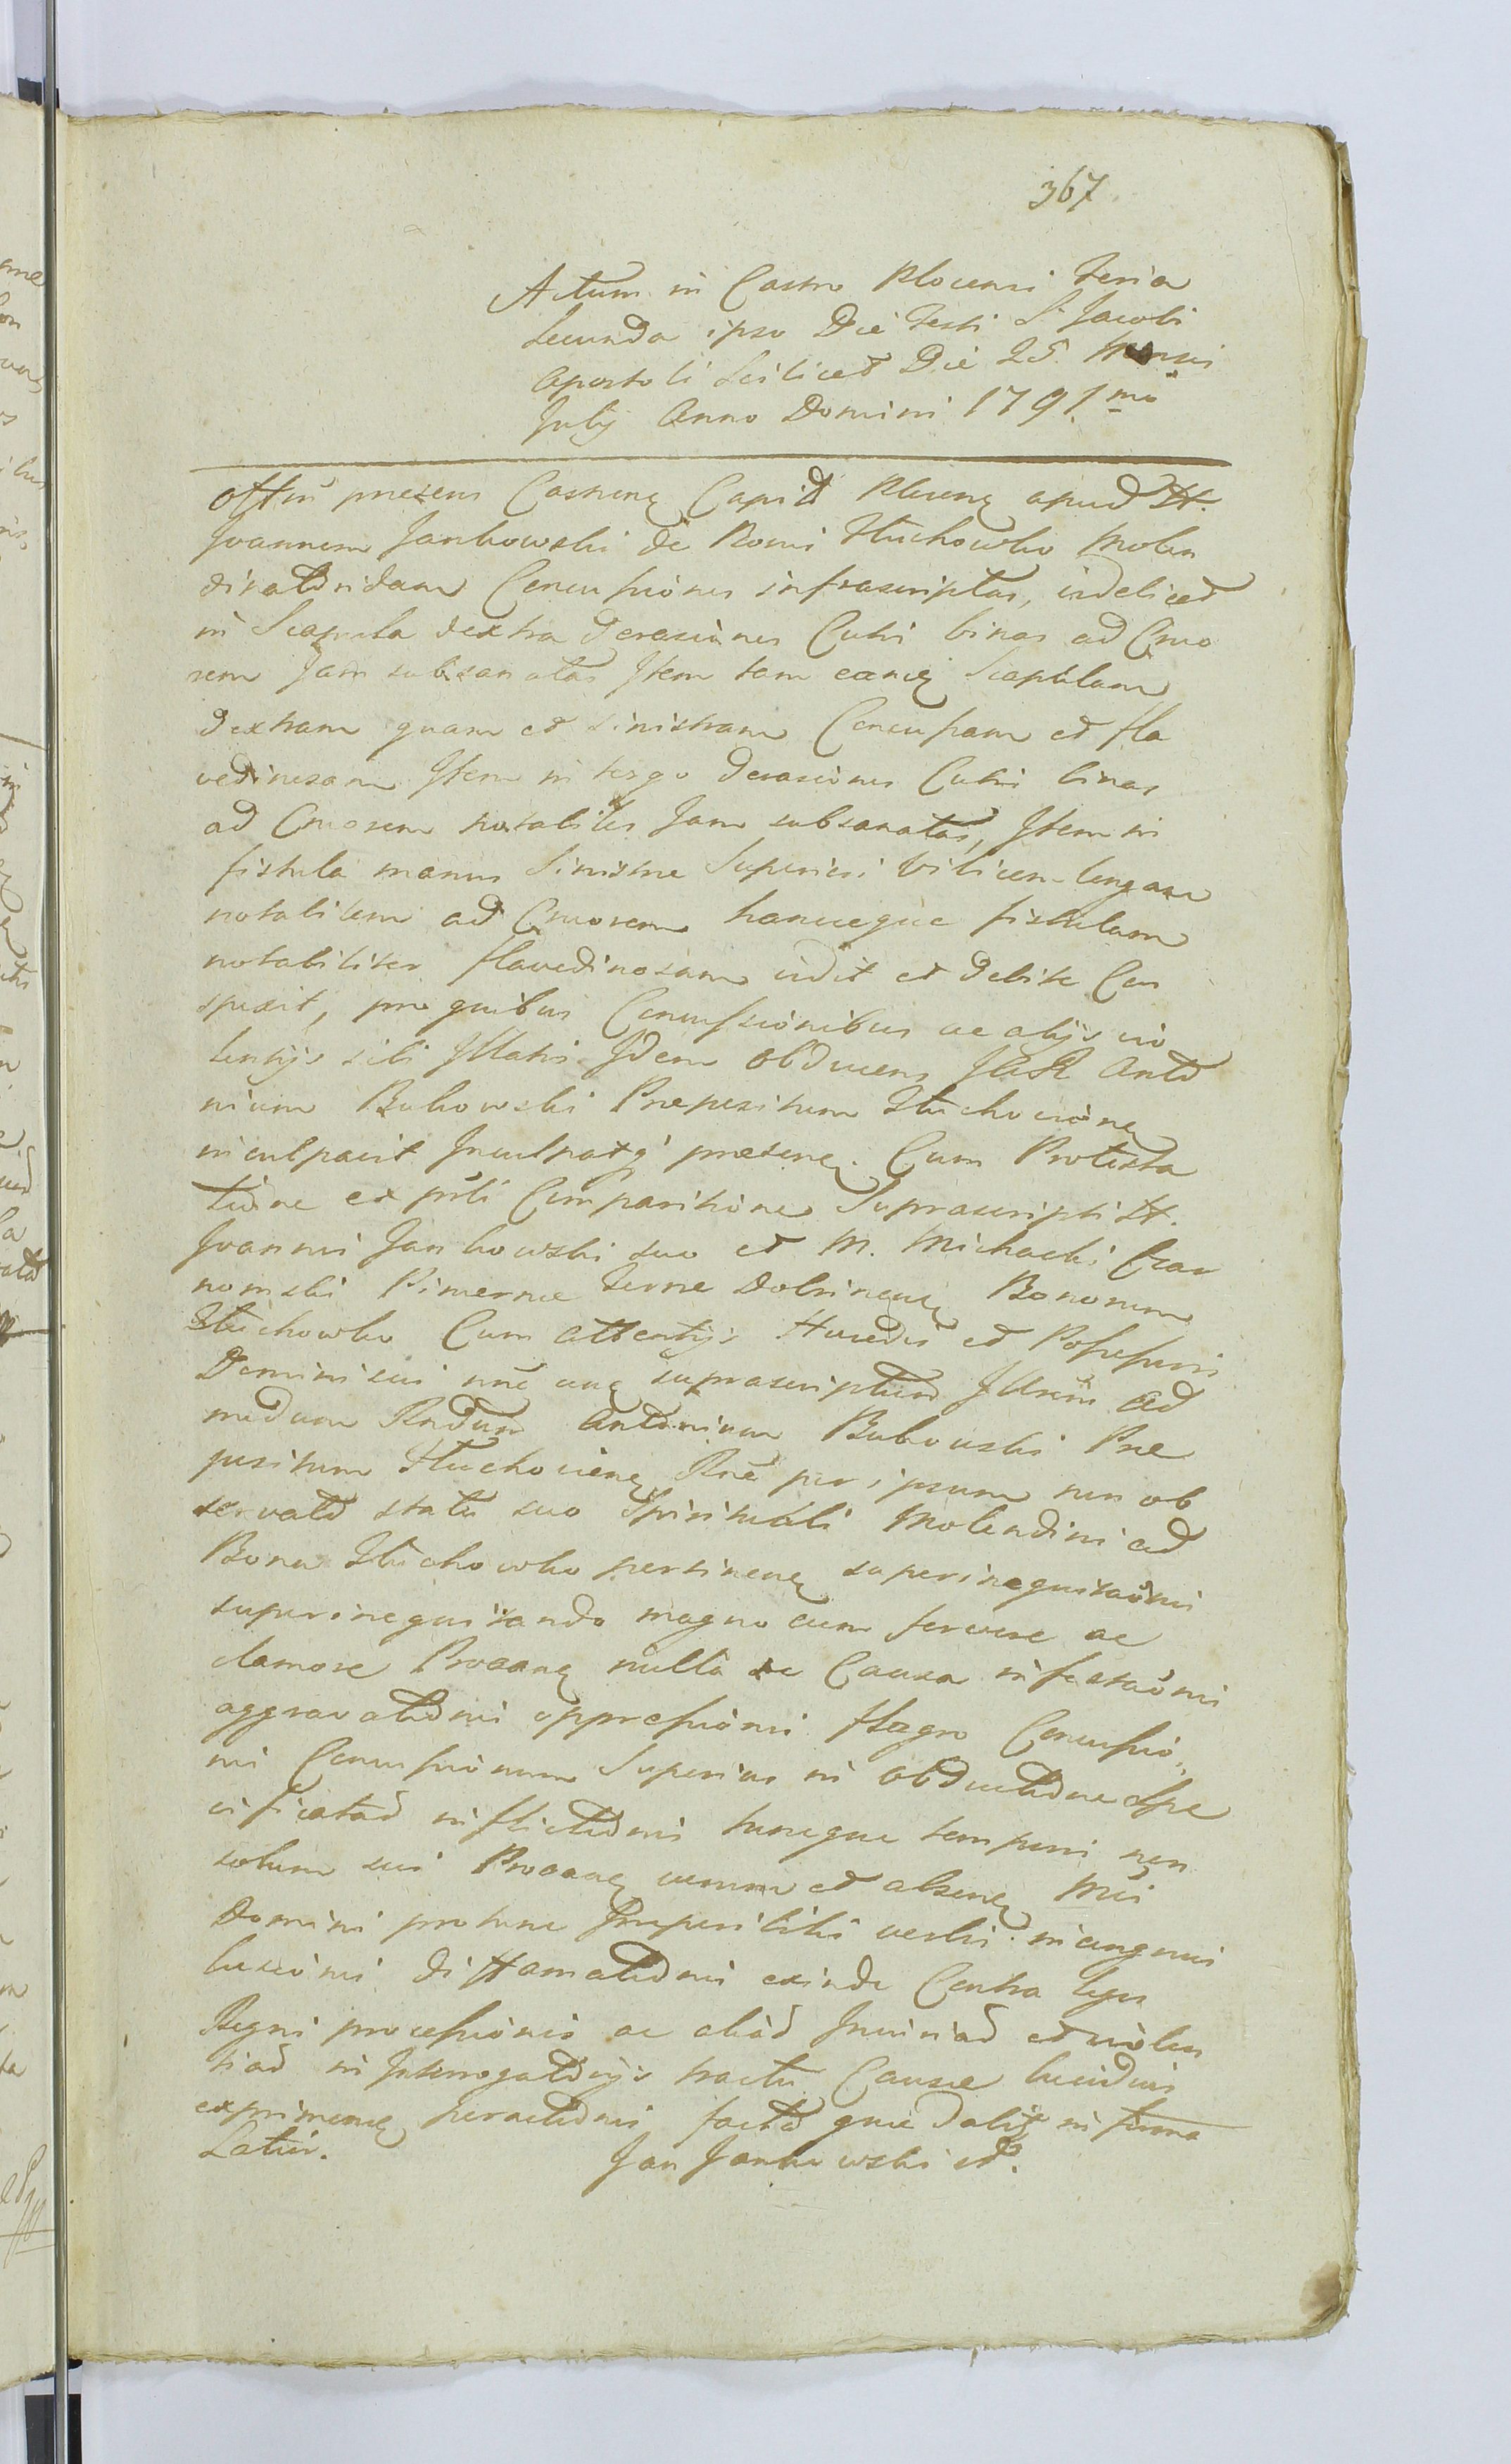 367
Actum in Castro Plocensi Feria
Secunda ipso Die Festi S. Jacobi
Apostoli Scilicet Die 25. Mensis
Julij Anno Domini 1791mo
Offm presens Castrens Capit Plocens apud H.
Joannem Jankowski de Bonis Tłuchowko Molen
dinatoridam Concussiones infrascriptas, videlicet
in Scapula dextra derasiones Cutis binas ad Cruo
rem Jam subsanatas Item tam eanq Scapulam
dextram quam et sinistram Concussam et fla
vedinosam Item in tergo derasiones Cutis binas
ad Cruorem notabiles Jam subsanatas, Item in
fistula manus Sinistre Superiori vibicem longam
notabilem ad Cruorem hancque fistulam
notabiliter flavedinosam vidit et debite Con
spexit, pro quibus Concussionibus ac alijs vio
lentijs sibi Illatis Idem Obducens Illust Anto
nium Bukowski Prepositum Tłuchoviens
inculpavit Inculpatq' presens. Cum Protesta
tione ex pñti Comparitione Suprascripti H.
Joannis Jankowski suo et M. Michaelis Czar
nomski Pincernæ Terræ Dobrinens Bonorum
Tłuchowko Cum Attentijs Hæredis et Possessoris
Domini sui nñe cunq suprascriptum Illrm Ad
modum Rndum Antonium Bukowski Præ
positum Tłuchoviens Rñe per ipsum non ob
servato statu suo Spirituali Molendini ad
Bona Tłuchowko pertinens superinequitaonis
superinequitando magno cum fervore ac
clamore Proaans nulla de Causa infestaonis
aggravationis oppressionis flagro Concussio
nis Concussionum Superius in Obductione Spe
cificatar inflictionis tuncque temporis non
solum sui Proaans verum et absens Mci
Domini protunc Impossibilis verbis incongruis
luxionis diffamationis exinde Contra leges
Regni processionis ac aliar Iniuriar et violen
tiar in Interrogatorijs tractu Causæ lucidius
exprimens peractionis facta quæ Datis in forma
Latior.
Jan Jankowski